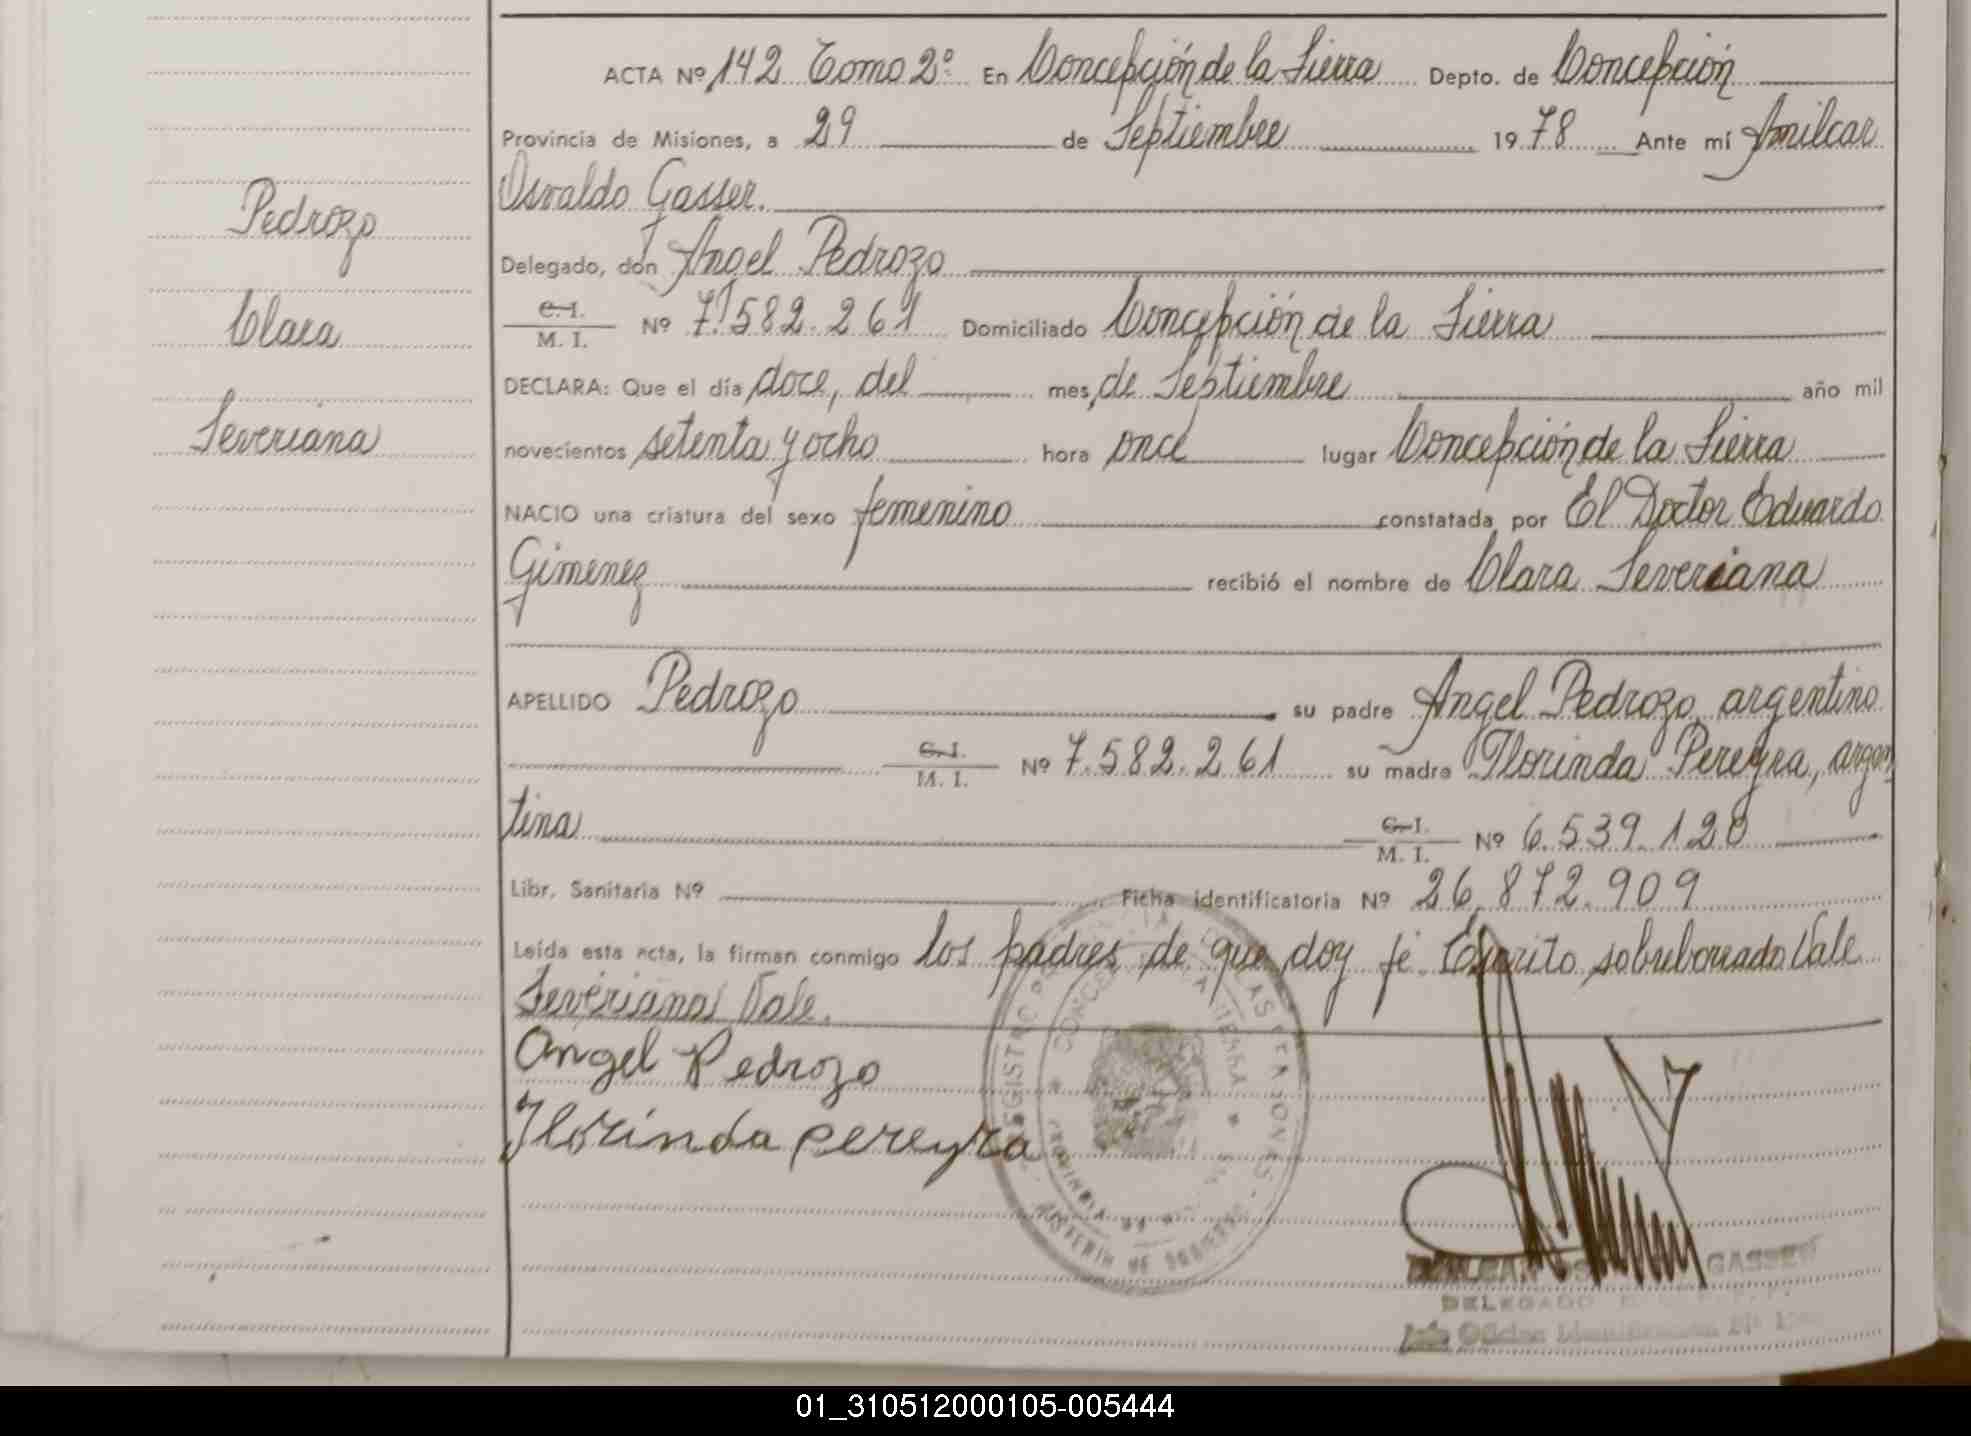 ACTA Nº 142 Tomo 2º En Concepción de la Sierra Depto. de Concepción
Provincia de Misiones, a 29 de Septiembre 1978 Ante mí Amilcar
Osvaldo Gasser.
Pedrozo
Delegado, don Angel Pedrozo
C. I. / M. I. Nº 7.582.261 Domiciliado Concepción de la Sierra
Clara
DECLARA: Que el día doce, del mes, de Septiembre año mil
novecientos setenta y ocho hora once lugar Concepción de la Sierra
Severiana
NACIO una criatura del sexo femenino constatada por El Doctor Eduardo
Gimenez recibió el nombre de Clara Severiana
APELLIDO Pedrozo su padre Angel Pedrozo, argentino
C. I. / M. I. Nº 7.582.261 su madre Florinda Pereyra, argen
tina C. I. / M. I. Nº 6.539.120
Libr. Sanitaria Nº Ficha identificatoria Nº 26.872.909
Leída esta acta, la firman conmigo los padres de que doy fé. Escrito sobreborreado Vale
Severiana Vale.
Angel Pedrozo
Florinda pereyra
GASSER
DELEGADO
01_310512000105-005444